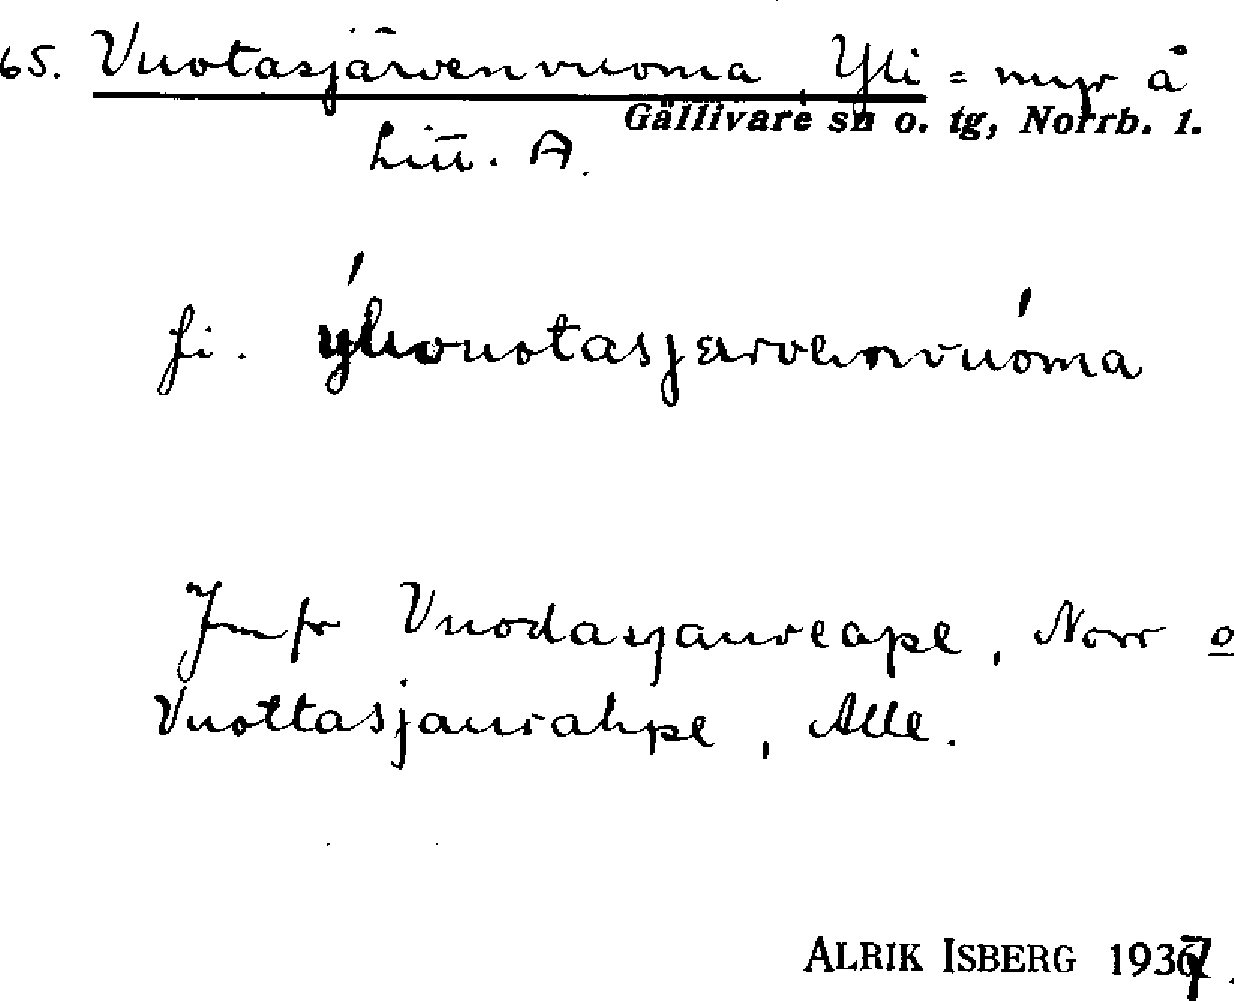 65. Vuotasjärvenvuoma, Yli = myr å
Gällivare sn o. tg, Norrb. l.
Litt. A.
fi. ýlivuotasjærvenvuóma
Jmfr Vuodasjaureape, Norr o
Vuottasjaurahpe, Alle.
ALRIK ISBERG 1937.